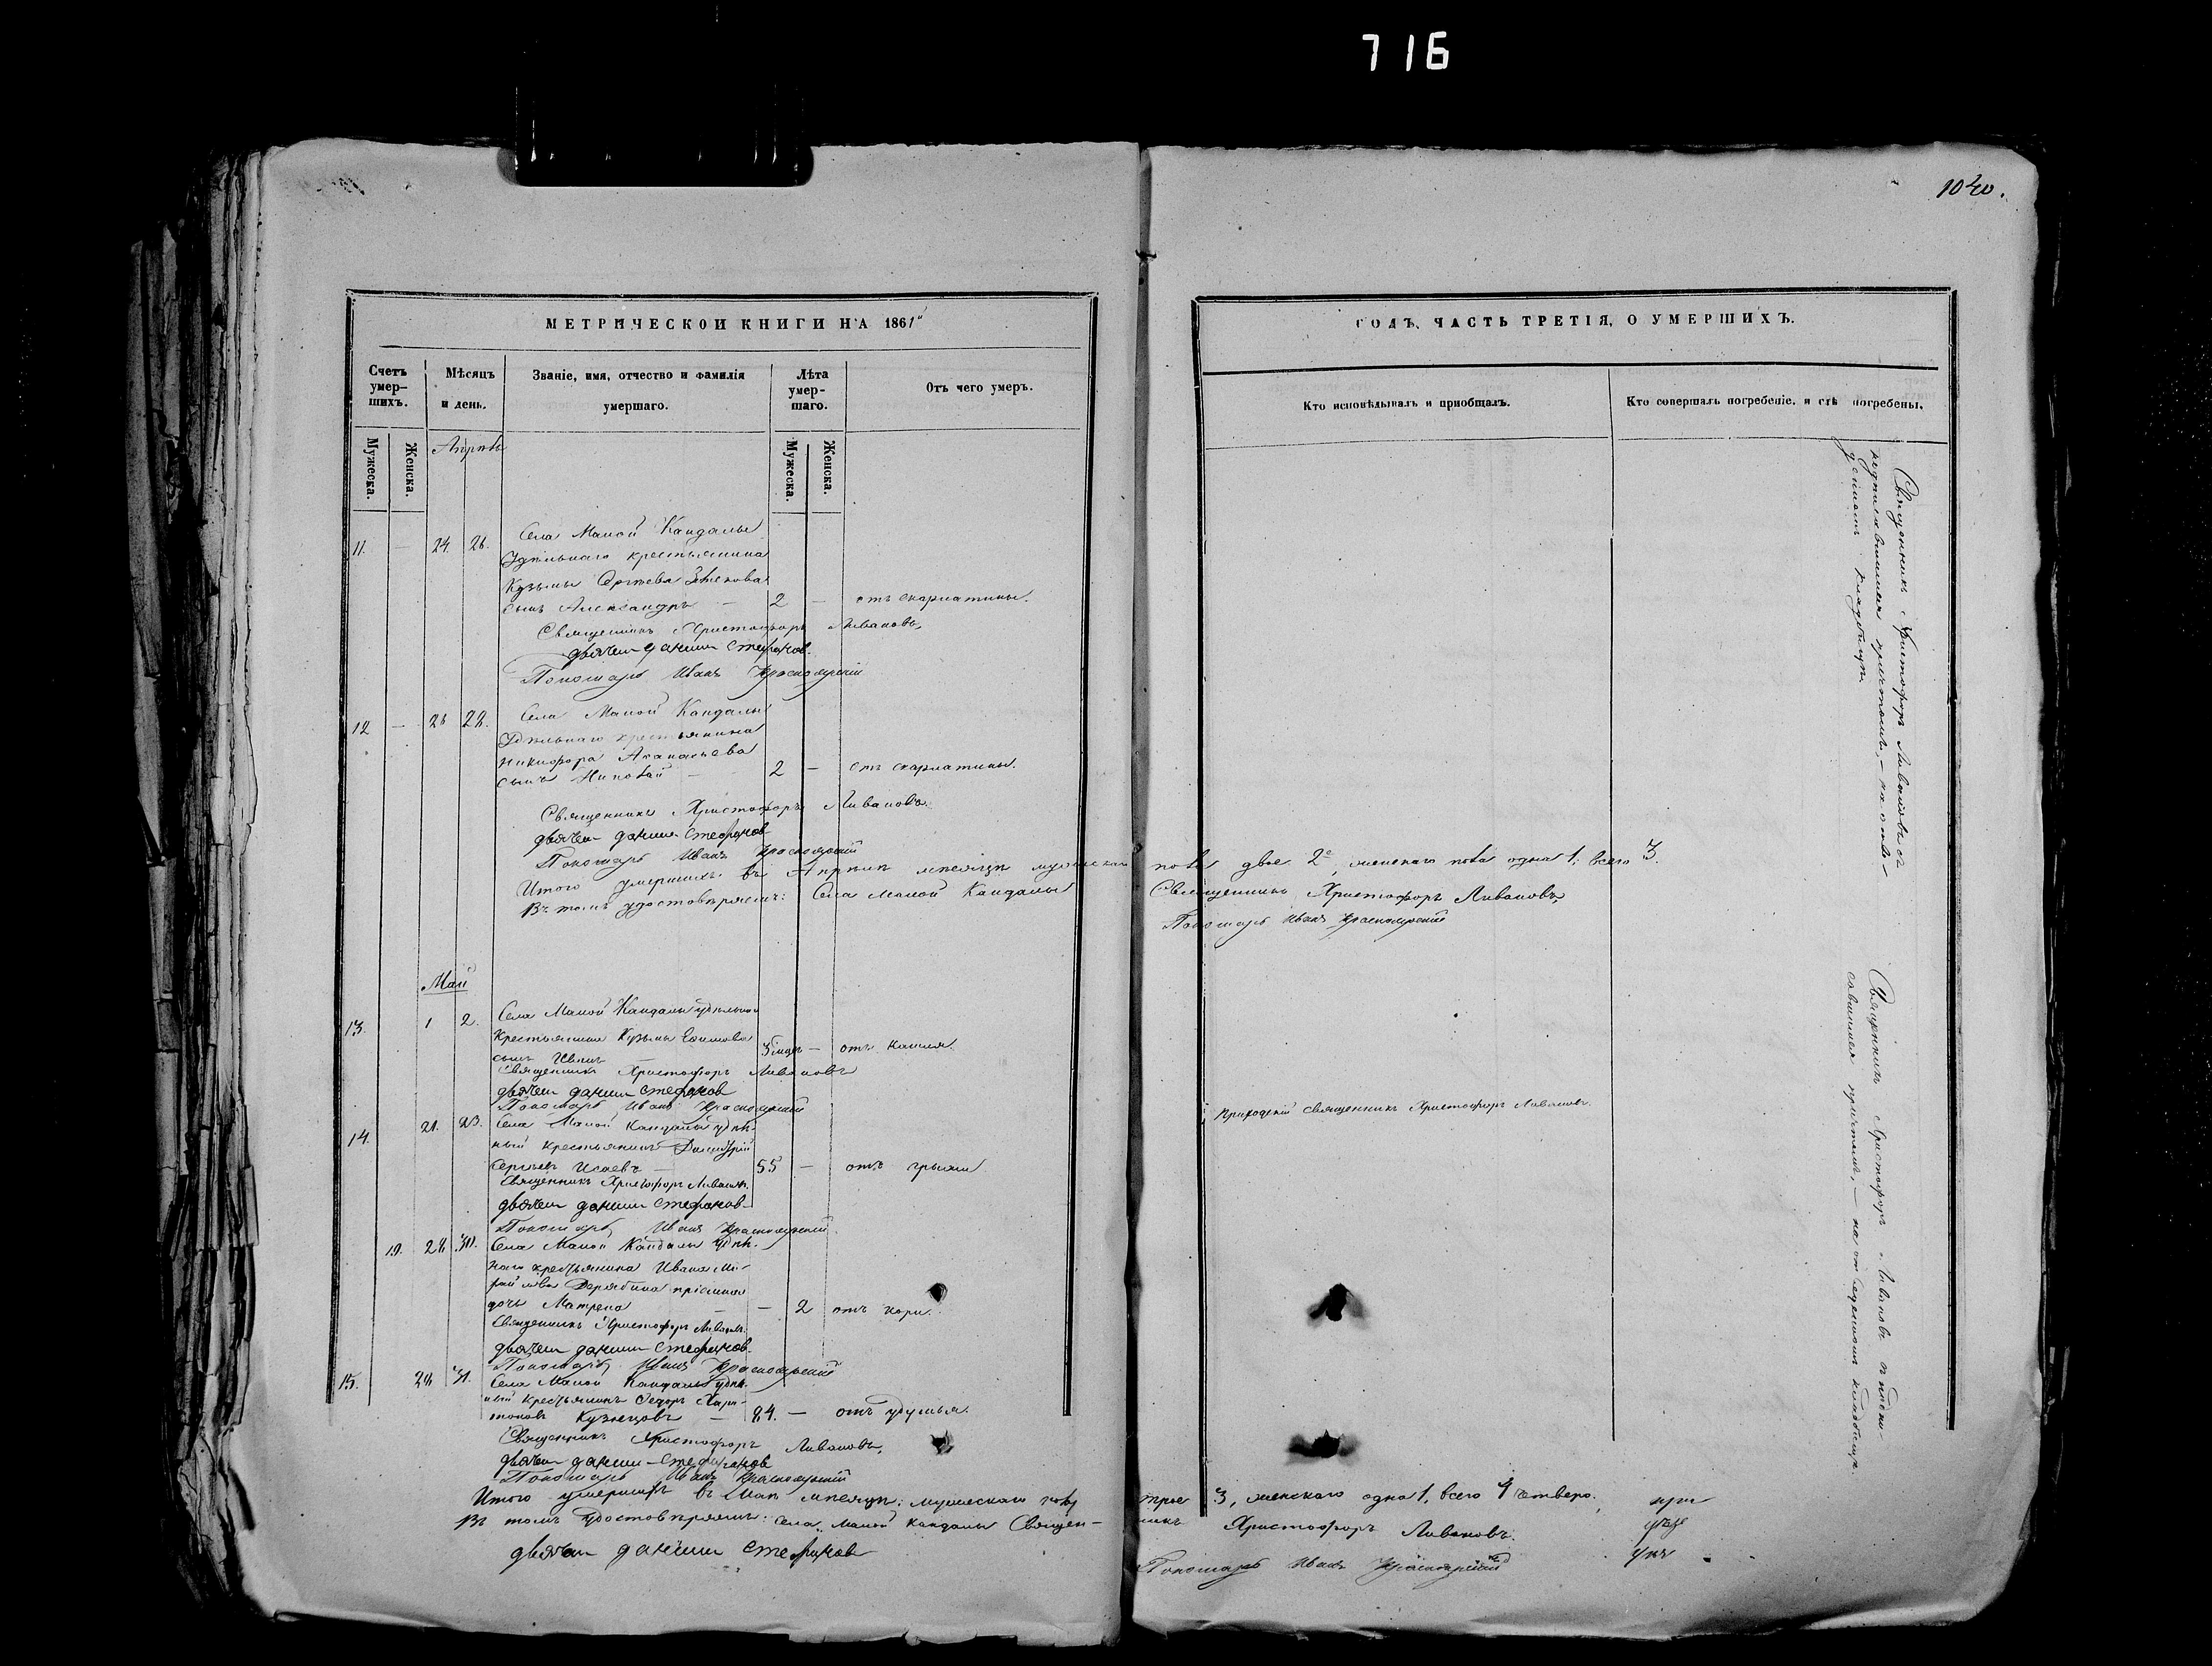 716
1040.
МЕТРИЧЕСКОЙ КНИГИ НА 1861
Счетъ умер-
шихъ.
Мѣсяцъ
и день.
Званіе, имя, отчество и фамилія
умершаго.
Лѣта
умер-
шаго.
Отъ чего умеръ.
Мужеска.
Женска.
Мужеска.
Женска.
11. — 24. 26. Села Малой Кандалы
Удѣльнаго крестьянина
Кузьмы Сергѣева
сынъ Александръ — 2 — отъ скарлатины.
Священникъ Христофоръ Ливановъ,
дьячекъ Даниил Стефанов
Пономарь Иванъ Красноярскій
12 — 26 28. Села Малой Кандалы
Удѣльнаго крестьянина
Никифора Аѳанасьева
сынъ Николай — 2 — отъ скарлатины.
Священникъ Христофоръ Ливановъ.
дьячекъ Даниил Стефанов
Пономарь Иванъ Красноярскій
Итого умершихъ въ Апрѣлѣ мѣсяцѣ мужескаго
Въ томъ удостовѣряемъ: Села Малой Кандалы
Май
13. 1 2. Села Малой Кандалы удѣльнаго
Крестьянина Кузьмы Ефимова
сынъ Иванъ — отъ кашля.
Священникъ Христофоръ Ливановъ
дьячекъ Даниил Стефанов
Пономарь Иванъ Красноярскій
14. 21. 23. Села Малой Кандалы удѣль-
ный крестьянинъ Димитрій
Сергѣевъ Исаевъ — 55 — отъ грыжи
Священникъ Христофоръ Ливановъ.
дьячекъ Даниил Стефанов
Пономарь Иванъ Красноярскій
28 30. Села Малой Кандалы удѣль-
наго крестьянина Ивана Ми-
Дерябина пріемная
дочь Матрена — — 2 отъ кори.
Священникъ Христофоръ Ливановъ.
дьячекъ Даниил Стефанов
Пономарь Иванъ Красноярскій
15. 31. Села Малой Кандалы удѣль-
ный крестьянинъ Ѳедоръ Хари-
тоновъ Кузнецовъ — 84. — отъ удушья.
Священникъ Христофоръ Ливановъ,
дьячекъ Даниил Стефанов
Пономарь Иванъ Красноярскій
Итого умершихъ въ Маѣ мѣсяцѣ: мужескаго пола
Въ томъ удостовѣряемъ: Села Малой Кандалы Священ-
дьячекъ Даниил Стефанов
ГОДЪ, ЧАСТЬ ТРЕТІЯ, О УМЕРШИХЪ.
Кто исповѣдывалъ и пріобщалъ.
Кто совершалъ погребеніе, и гдѣ погребены.
Священникъ Христофоръ Ливановъ съ
подписавшимся причтомъ, — на отве-
денномъ кладбищѣ.
пола двое 2, женскаго пола одна 1; всего 3.
Священникъ Христофоръ Ливановъ,
Пономарь Иванъ Красноярскій
Приходскій священникъ Христофоръ Ливановъ.
Священникъ Христофоръ Ливановъ съ подпи-
савшимся причтомъ, — на отведенномъ кладбищѣ.
трое 3, женскаго одна 1, всего 4 четверо.
никъ Христофоръ Ливановъ.
Пономарь Иванъ Красноярскій